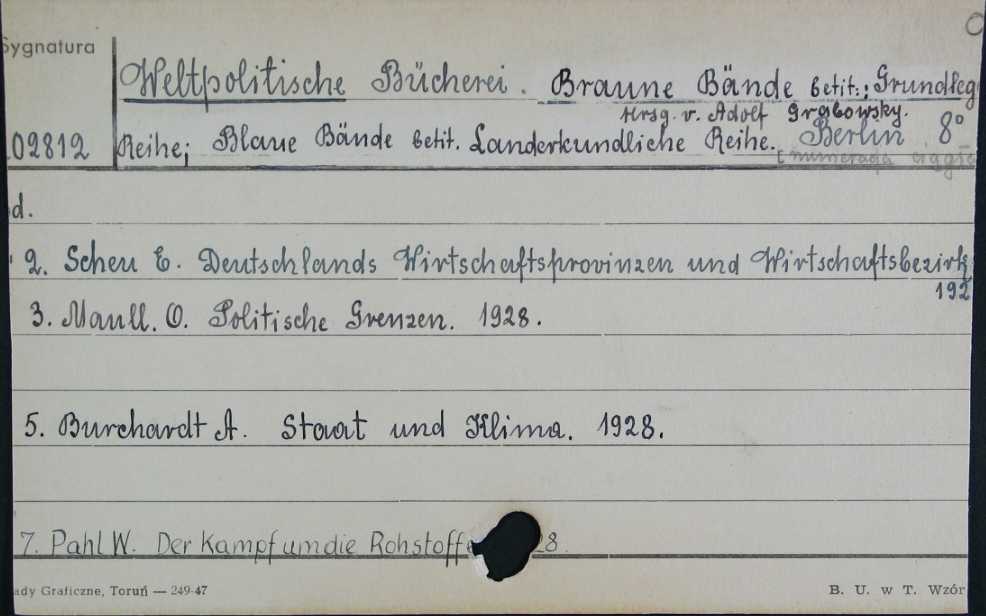 Sygnatura
Weltpolitische Bücherei. Braune Bände betit.: Grundleg
Hrsg. v. Adolf Grabowsky.
02812 Reihe; Blaue Bände betit. Landerkundliche Reihe. Berlin 8°
[numeracja
d.
2. Scheu E. Deutschlands Wirtschaftsprovinzen und Wirtschaftsbezirk
192
3. Maull. O. Politische Grenzen. 1928.
5. Burchardt A. Staat und Klima. 1928.
7. Pahl W. Der Kampf um die Rohstoffe 28.
ady Graficzne, Toruń — 249-47
B. U. w T. Wzór